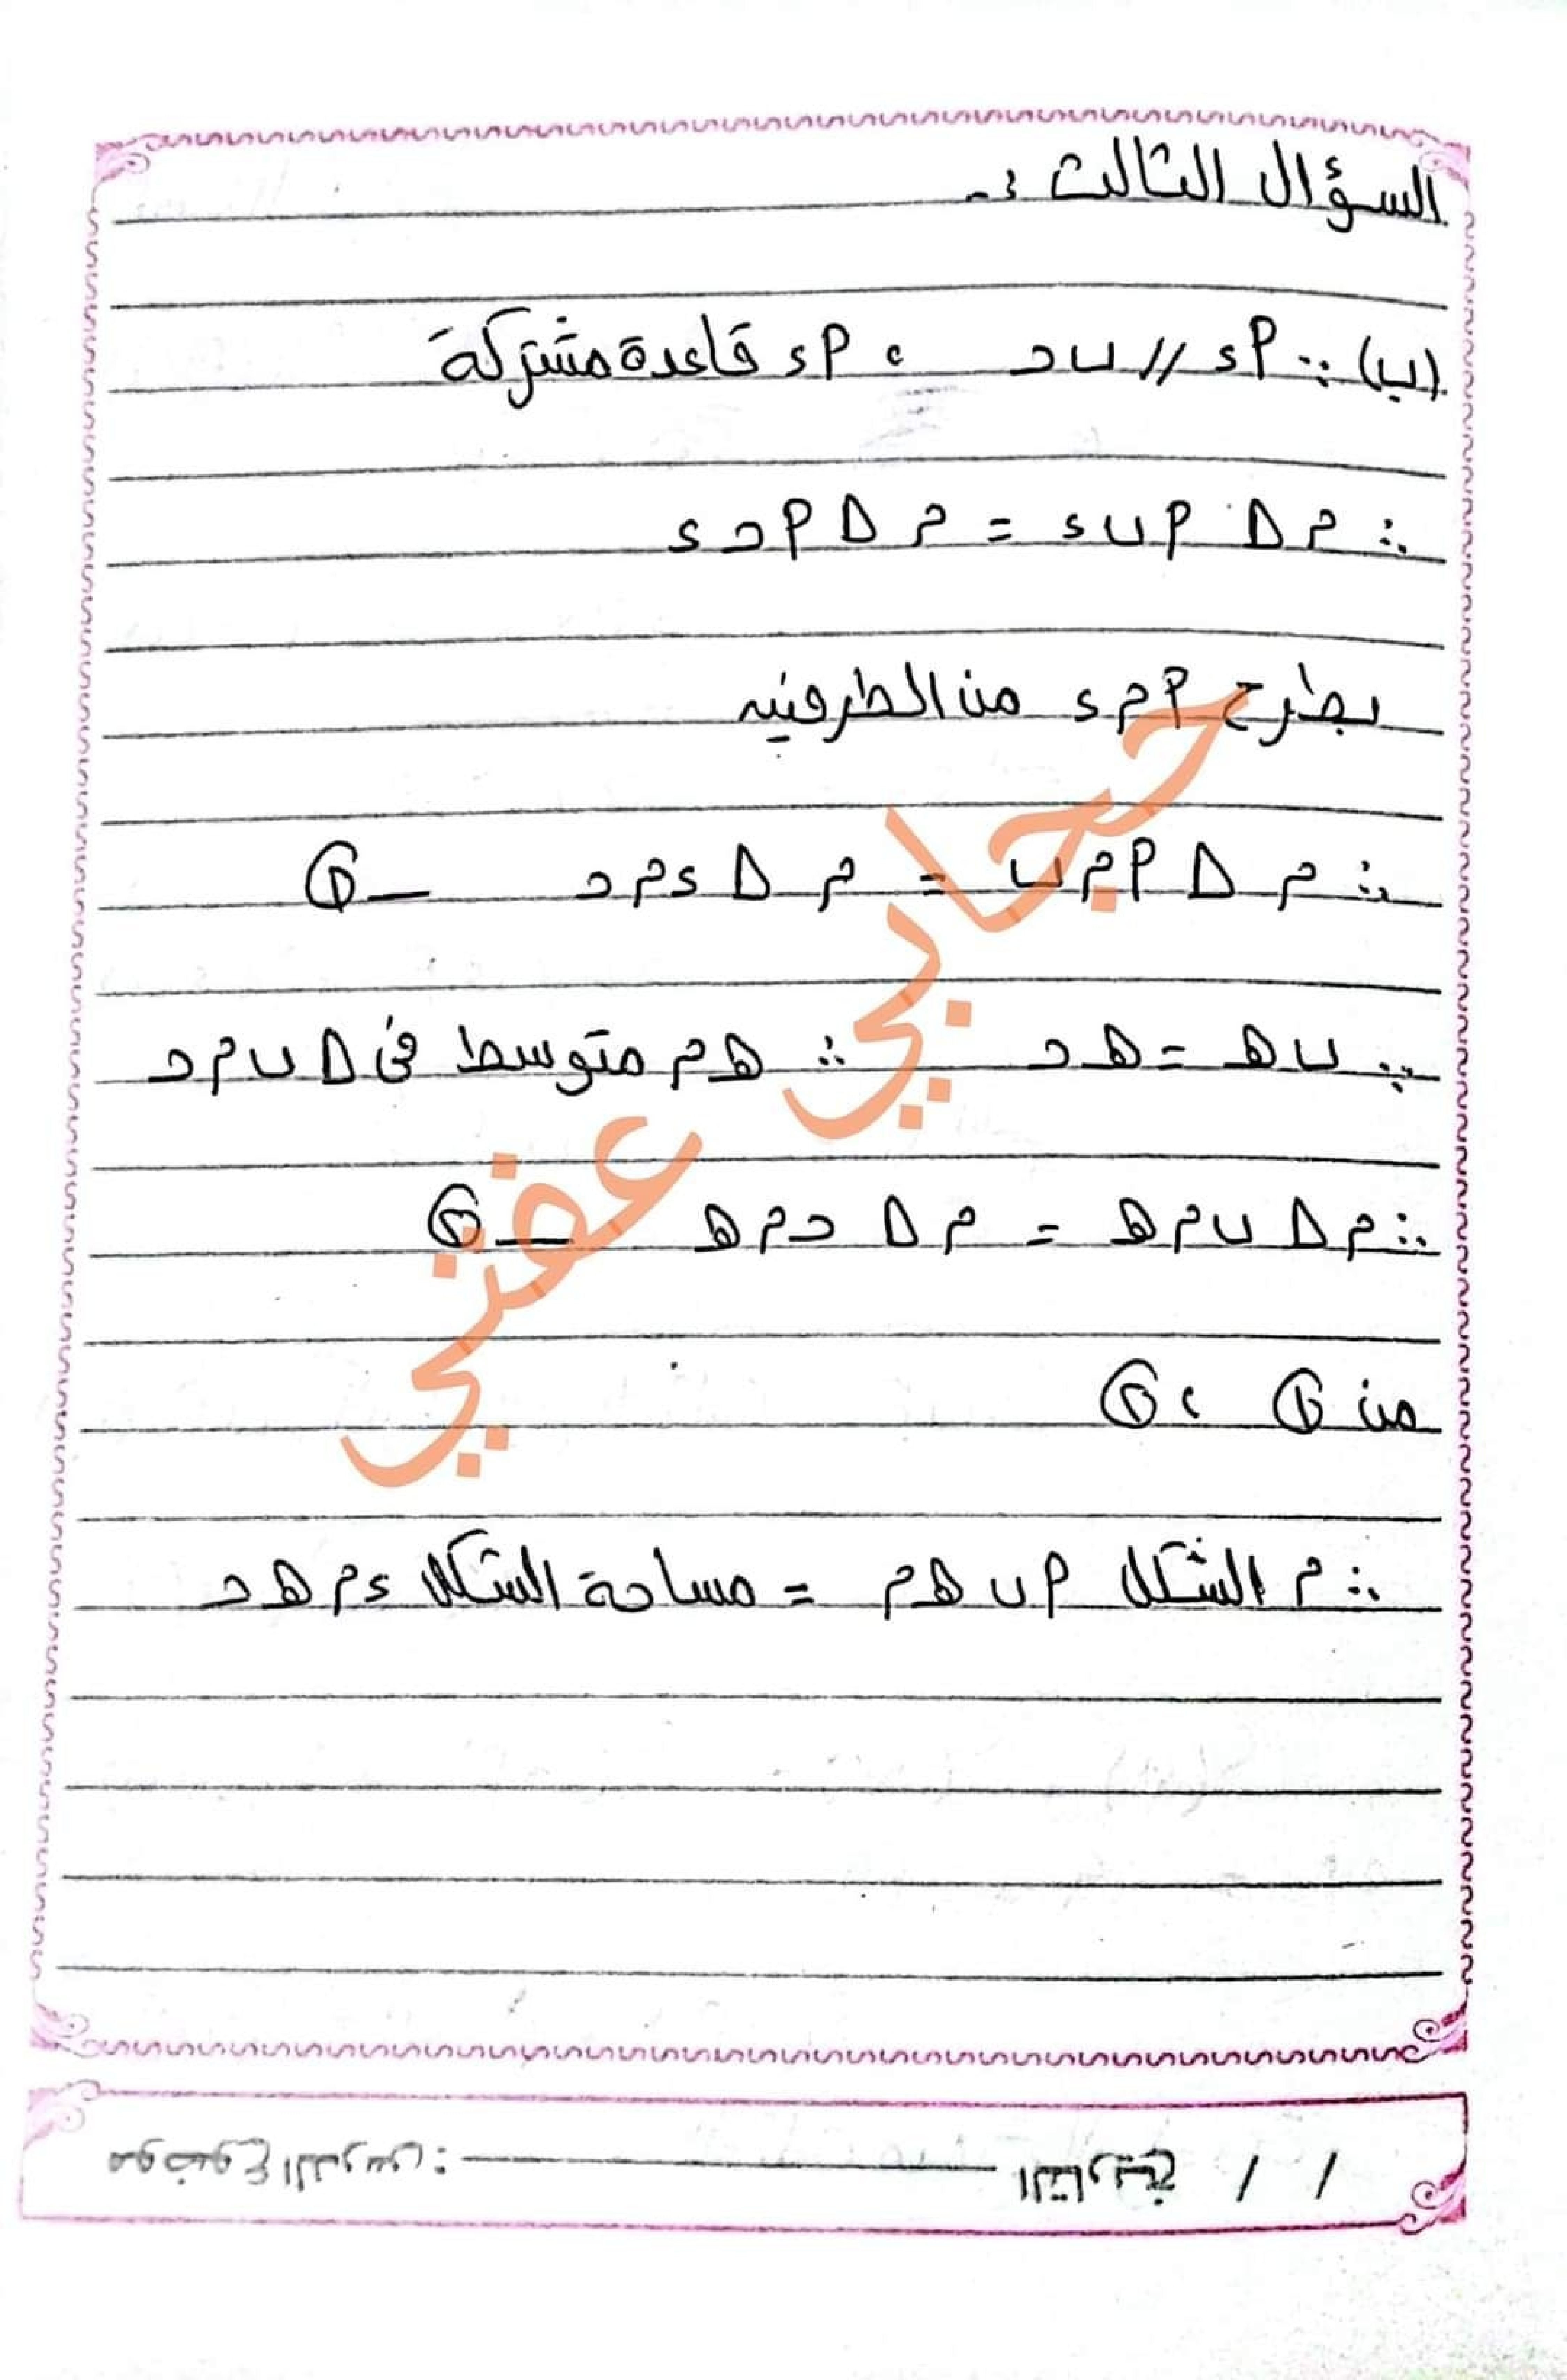 السؤال الثالث :-
(ب) ∵ أ ء // ب حـ ، أ ء قاعدة مشتركة
∴ م Δ أ ب ء = م Δ أ حـ ء
بطرح أ م ء من الطرفين
∴ م Δ أ م ب = م Δ ء م حـ — ①
∵ ب هـ = هـ حـ ∴ هـ م متوسط فى Δ ب م حـ
∴ م Δ ب م هـ = م Δ حـ م هـ — ②
من ① ، ②
∴ م الشكل أ ب هـ م = مساحة الشكل ء م هـ حـ
حجابي عفني
التاريخ / /
موضوع الدرس: